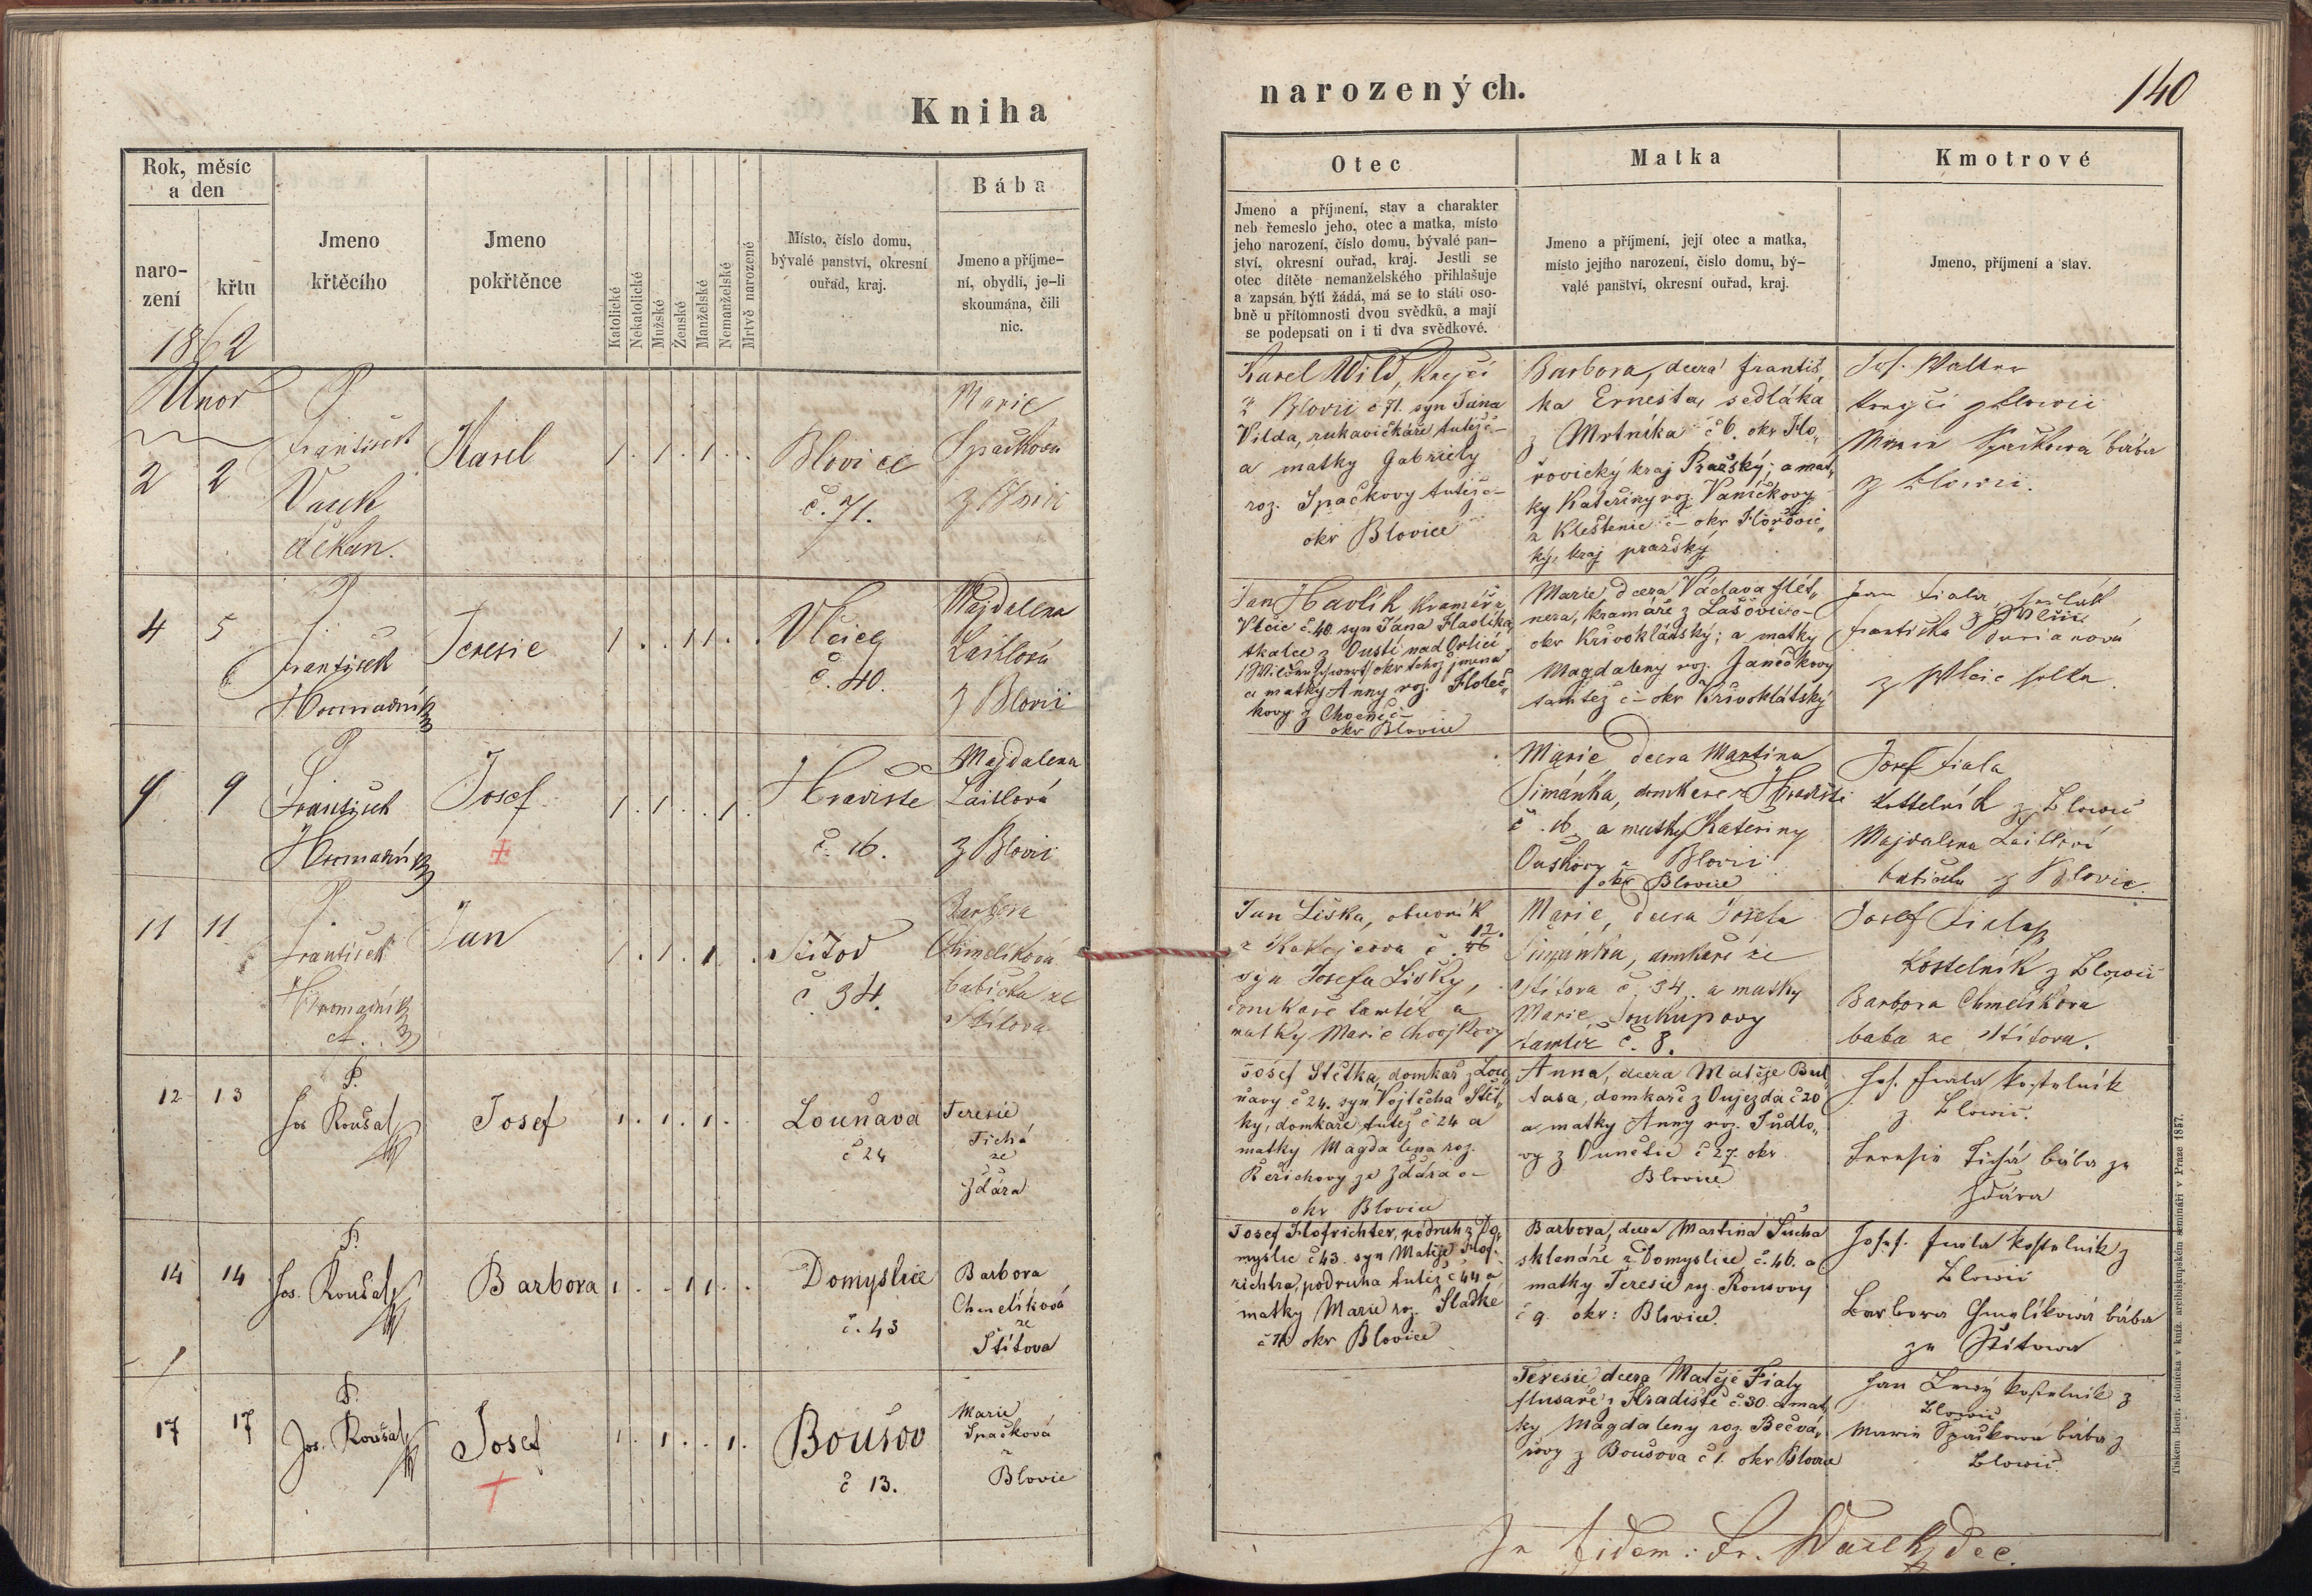 Kniha
narozených.
140
Rok, měsíc
a den
naro-
zení
křtu
Jmeno
křtěcího
Jmeno
pokřtěnce
Katolické
Nekatolické
Mužské
Ženské
Manželské
Nemanželské
Mrtvě narozené
Místo, číslo domu,
bývalé panství, okresní
ouřad, kraj.
Bába
Jmeno a příjme-
ní, obydlí, je-li
skoumána, čili
nic.
Otec
Jmeno a příjmení, stav a charakter
neb řemeslo jeho, otec a matka, místo
jeho narození, číslo domu, bývalé pan-
ství, okresní ouřad, kraj. Jestli se
otec dítěte nemanželského přihlašuje
a zapsán býti žádá, má se to státi oso-
bně u přítomnosti dvou svědků, a mají
se podepsati on i ti dva svědkové.
Matka
Jmeno a příjmení, její otec a matka,
místo jejího narození, číslo domu, bý-
valé panství, okresní ouřad, kraj.
Kmotrové
Jmeno, příjmení a stav.
1862
Unor
2 2
P.
František
Vacek
děkan.
Karel
1 . 1 . 1 . .
Blovice
č. 71.
Marie
Špačkova
z Blovic
Karel Wild, Krejčí
z Blovic č 71. syn Jana
Vilda, rukavičkáře tutéž č–
a matky Gabriely
roz. Špačkovy tutéž č–
okr Blovice
Barbora, dcera Františ„
ka Ernesta, sedláka
z Mrtníka č 6. okr Ho„
řovický kraj Pražský; a mat„
ky Kateřiny roz. Vaníčkovy
z Kleštenic č– okr Hořovic„
ký, kraj pražský
Jos. Walter
krejčí z Blowic
Marie Špačkowa bába
z Blowic.
4 5
P.
František
Hromadník
Teresie
1 . . 1 1 . .
Vlčice
č. 40.
Majdalena
Laiblová
z Blovic
Jan Havlík Kramář z
Vlčic č. 40. syn Jána Havlíka
tkalce z Oustí nad Orlicí
okr tehož jmena
a matky Anny roz. Holeč„
kovy z Chocně č–
okr Blovice
Marie dcera Václava
kramáře z Lašovic č–
okr Křivoklátský; a matky
Magdaleny roz. Janečkovy
tamtéž č– okr Křivoklátský
Jan Fiala, sedlák
z Wlčic
Františka Durianová
z Wlčic
9 9
P.
František
Hromadník
Josef
+
1 . 1 . . 1 .
Hradiste
č. 16.
Majdalena
Laiblová
z Blovic
Marie dcera Martina
Šimánka, domkare z Hradisti
č. 16 a matky Kateriny
Ouskovy z Blovic
okr Blovice
Josef Fiala
kostelník z Blowic
Majdalena Laiblová
babička z Blovic.
11 11
P.
František
Hromadník
Jan
1 . 1 . 1 . .
Štítov
č. 34.
Barbora
Chmelíková
babička ze
Štítova
Jan Liška, obuvník
z č. 12.
syn Josefa Lišky,
domkaře tamtéž a
matky Marie
Marie, dcera Josefa
Šimánka, domkaře ze
Štítova č. 34. a matky
Marie Soukupovy
tamtéž č. 8.
Josef Fiala
kostelník z Blowic
Barbora Chmelíkova
baba ze Štítova.
12 13
P.
Jos Roušal
Josef
1 . 1 . 1 . .
Louňavá
č 24
Teresie
Tichá
ze
Ždára
Josef Štětka, domkař z Lou„
ňavy č 24. syn Vojtěcha Štět„
ky, domkaře tutéž č 24 a
matky Magdalena roz.
Beřichovy ze Ždára č–
okr Blovice
Anna, dcera Matěje Bul„
tasa, domkaře z Oujezda č 20
a matky Anny roz. Jůdlo„
vy z Ounětic č 27. okr
Blovice
Jos. Fiala kostelník
z Blowic.
Teresie Tichá bába ze
Ždára
14 14
P.
Jos. Roušal
Barbora
1 . . 1 1 . .
Domyslice
č. 43
Barbora
Chmelíková
ze
Štítova
Josef Hofrichter, podruh z Do„
myslic č 43. syn Matěje Hof-
richtra, podruha tutéž č 44 a
matky Marie roz. Sladke
okr Blovice
Barbora, dcera Martina Sucha
sklenáře z Domyslic č. 46. a
matky Teresie roz. Rousovy
č 9. okr: Blovice.
Josef. Fiala kostelník z
Blowic
Barbora Chmelíková bába
ze Štítowa
17 17
P.
Jos. Roušal
Josef
+
1 . 1 . . 1 .
Boušov
č 13.
Marie
Špačková
z
Blovic
Teresie dcera Matěje Fialy
z Hradiště č. 30. a mat„
ky Magdaleny roz. Bečvá„
rovy z Boušova č 1. okr Blovice
Jan kostelník z
Blowic
Marie Špačkowá bába z
Blowic.
In fidem: Fr. Wacek dec.
Tiskem Bedř. Rohlíčka v kníž. arcibiskupském semináři v Praze 1857.